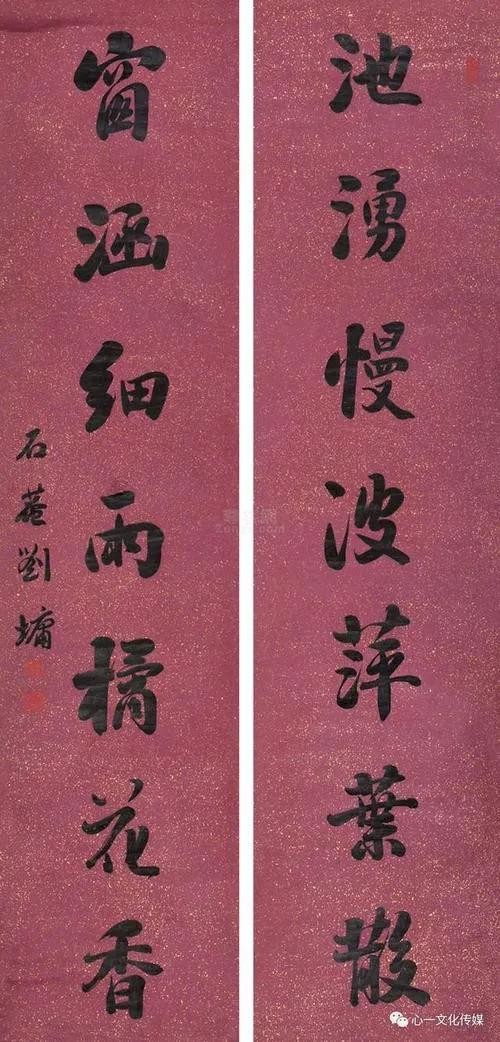 池湧慢波萍葉散
窗涵細雨橘花香
石菴劉墉
心一文化传媒